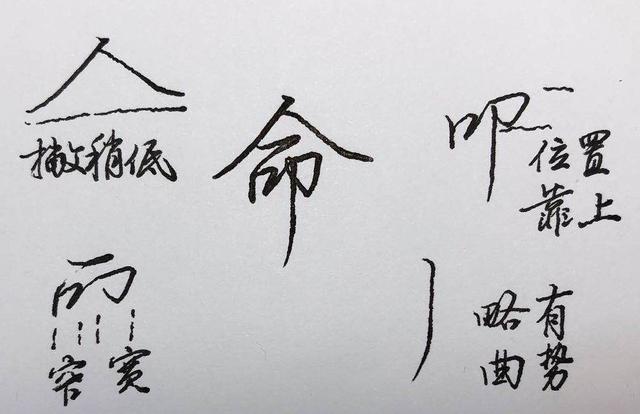 人
撇稍低
命
叩
位置
靠上
窄 宽
略有
曲势